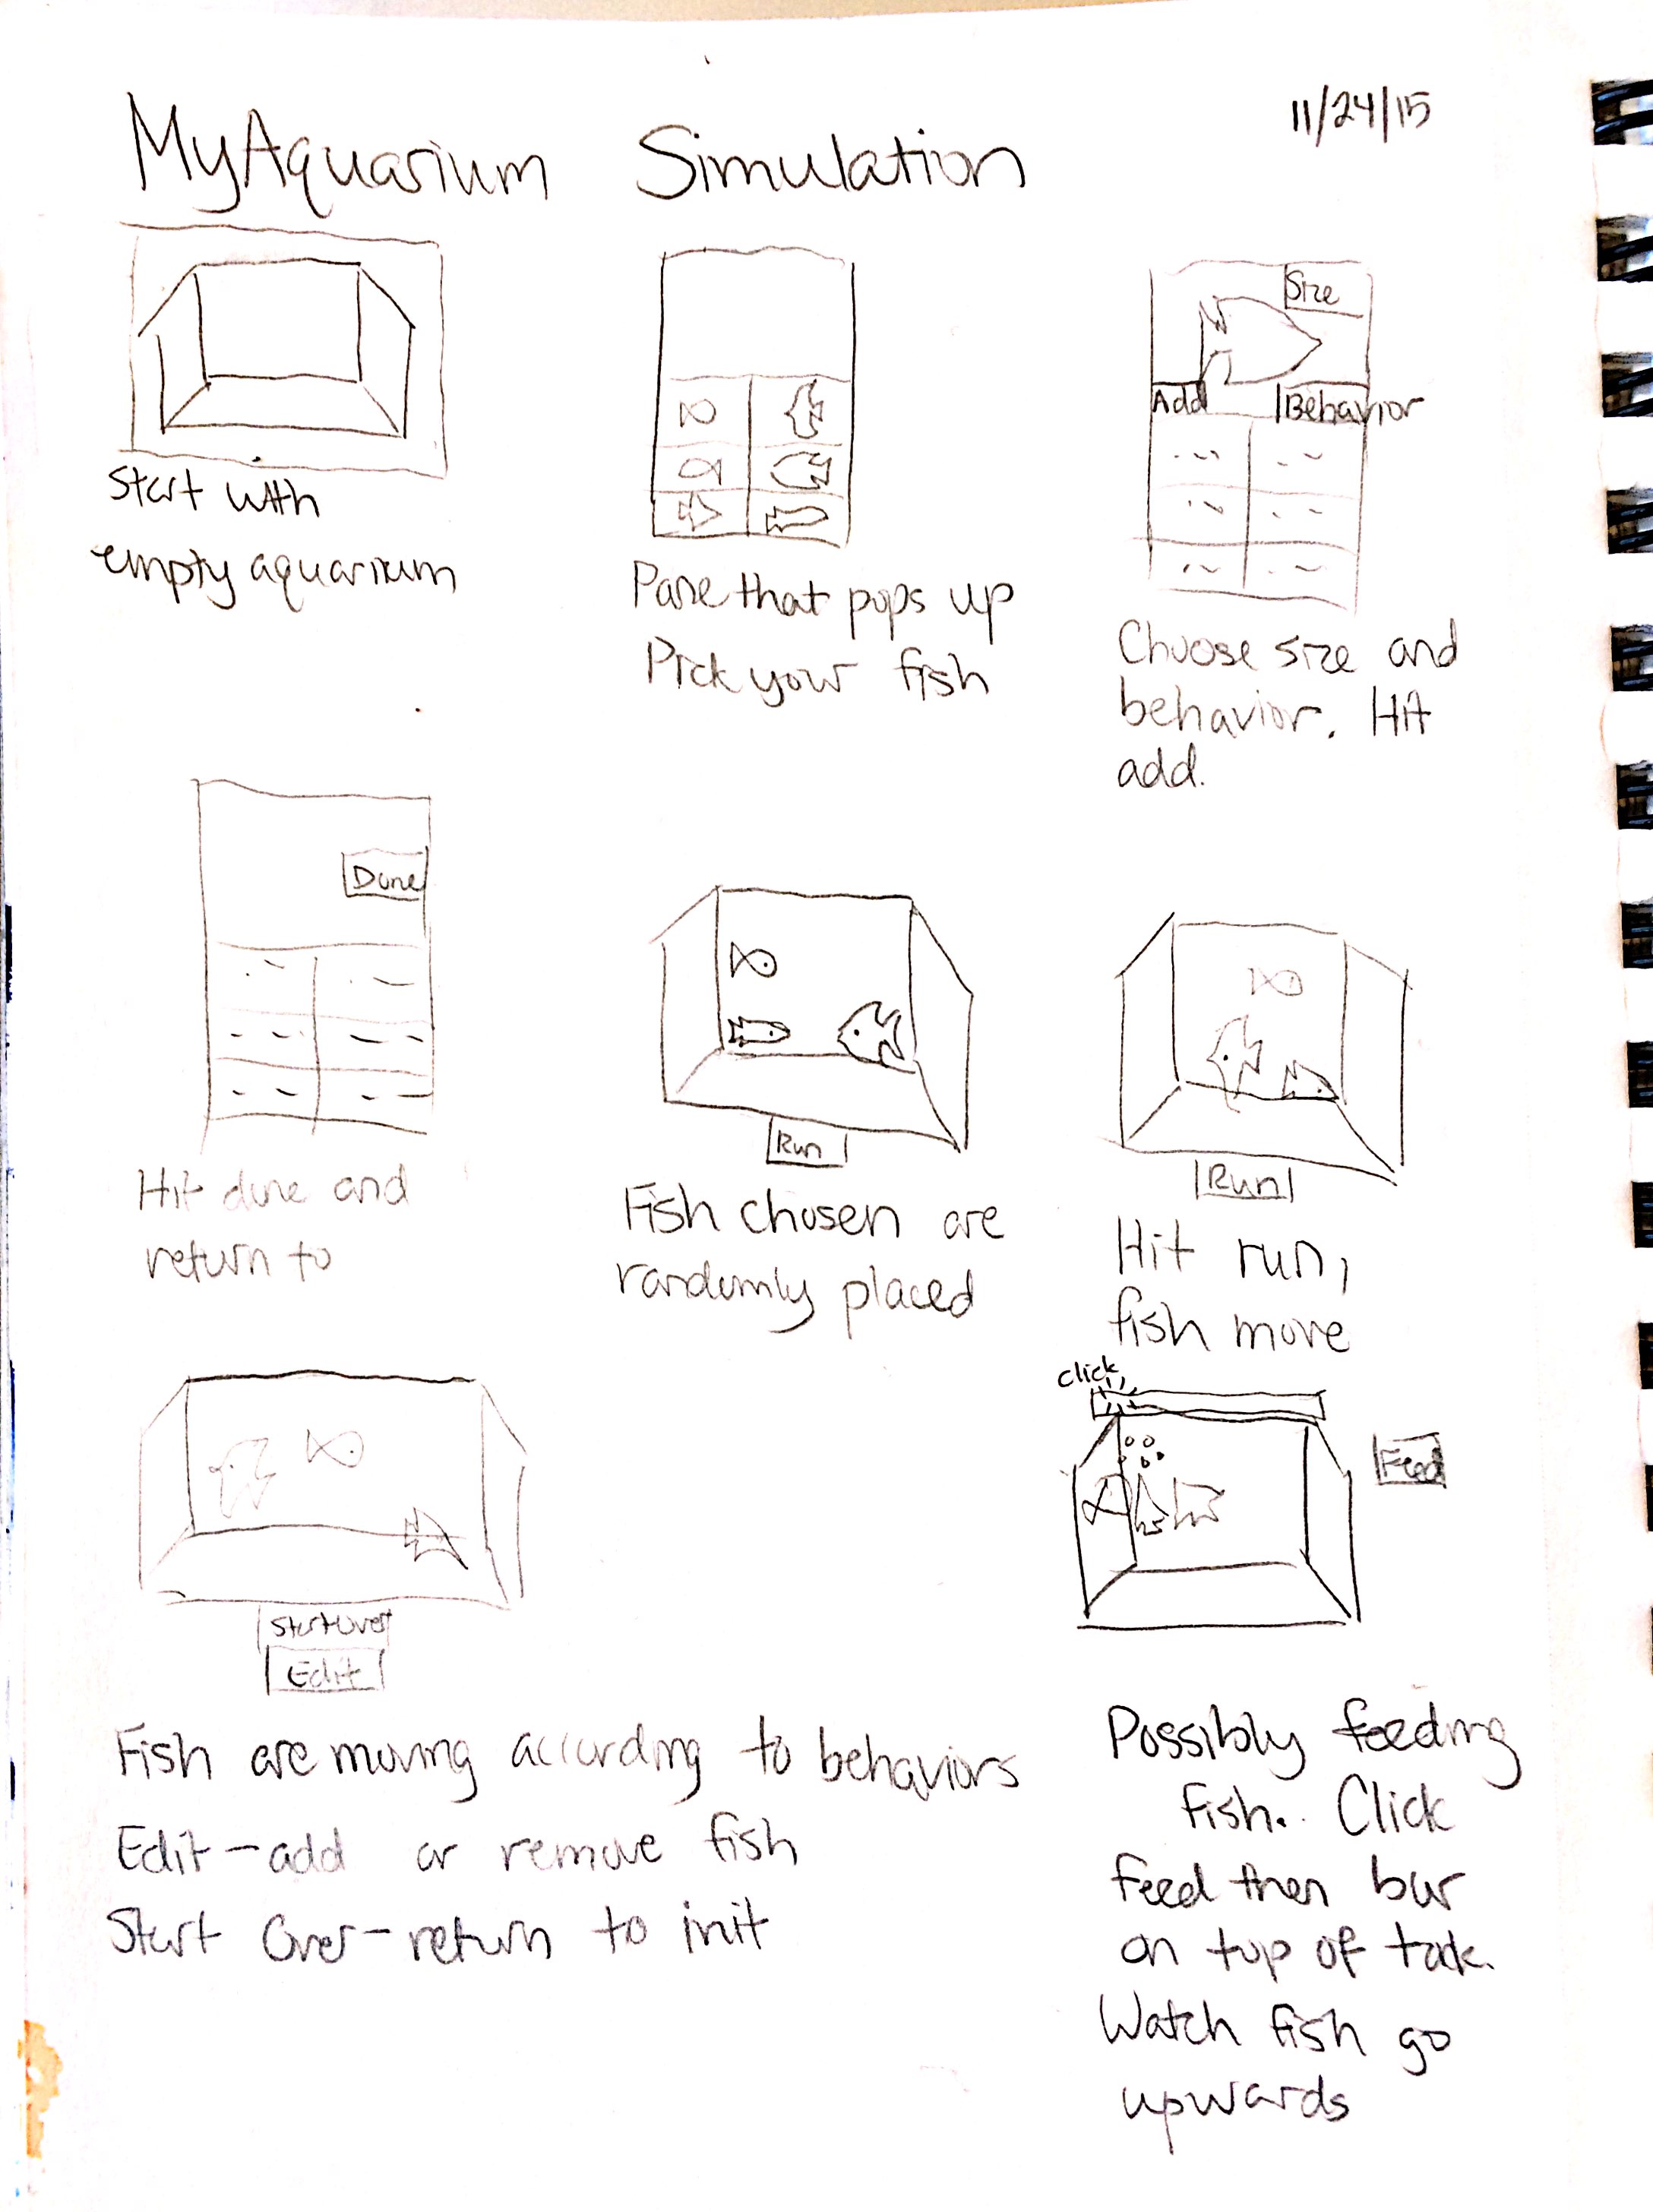 11/24/15
MyAquarium Simulation
Start with
empty aquarium
Pane that pops up
Pick your fish
Size
Add
Behavior
Choose size and
behavior. Hit
add.
Done
Hit done and
return to
Run
Fish chosen are
randomly placed
Run
Hit run,
fish move
Start Over
Edit
Fish are moving according to behaviors
Edit - add or remove fish
Start Over - return to init
click
Feed
Possibly feeding
fish. Click
feed then bar
on top of tank.
Watch fish go
upwards